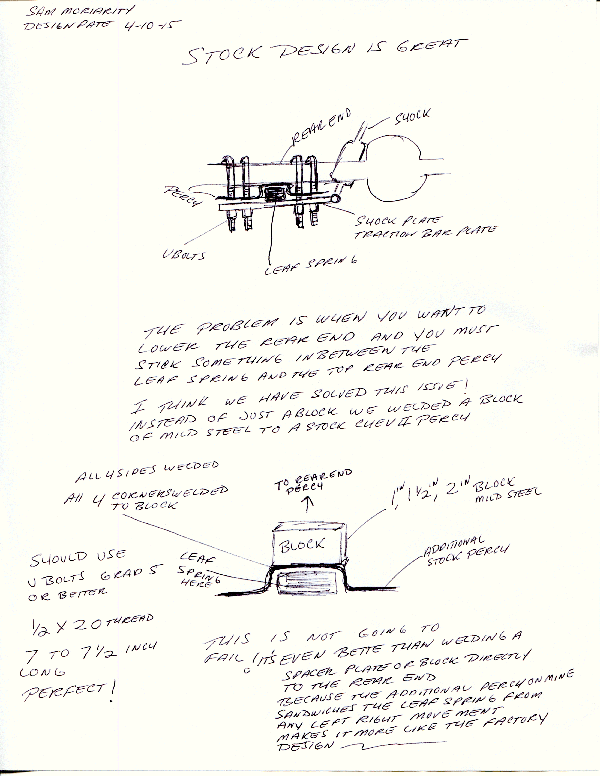 SAM MORIARITY
DESIGN DATE 4-10-15
STOCK DESIGN IS GREAT
REAR END
SHOCK
PERCY
SHOCK PLATE
TRACTION BAR PLATE
U BOLTS
LEAF SPRING
THE PROBLEM IS WHEN YOU WANT TO
LOWER THE REAR END AND YOU MUST
STICK SOMETHING INBETWEEN THE
LEAF SPRING AND THE TOP REAR END PERCY
I THINK WE HAVE SOLVED THIS ISSUE!
INSTEAD OF JUST A BLOCK WE WELDED A BLOCK
OF MILD STEEL TO A STOCK CHEV II PERCY
ALL 4 SIDES WELDED
All 4 CORNERS WELDED
TO BLOCK
TO REAR END
PERCY
1IN, 1 1/2IN, 2IN BLOCK
MILD STEEL
BLOCK
ADDITIONAL
STOCK PERCY
LEAF
SPRING
HERE
SHOULD USE
U BOLTS GRAD 5
OR BETTER
1/2 X 20 THREAD
7 TO 7 1/2 INCH
LONG
PERFECT!
THIS IS NOT GOING TO
FAIL! IT'S EVEN BETTE THAN WELDING A
SPACER PLATE OR BLOCK DIRECTLY
TO THE REAR END
BECAUSE THE ADDITIONAL PERCY ON MINE
SANDWICHES THE LEAF SPRING FROM
ANY LEFT RIGHT MOVEMENT
MAKES IT MORE LIKE THE FACTORY
DESIGN